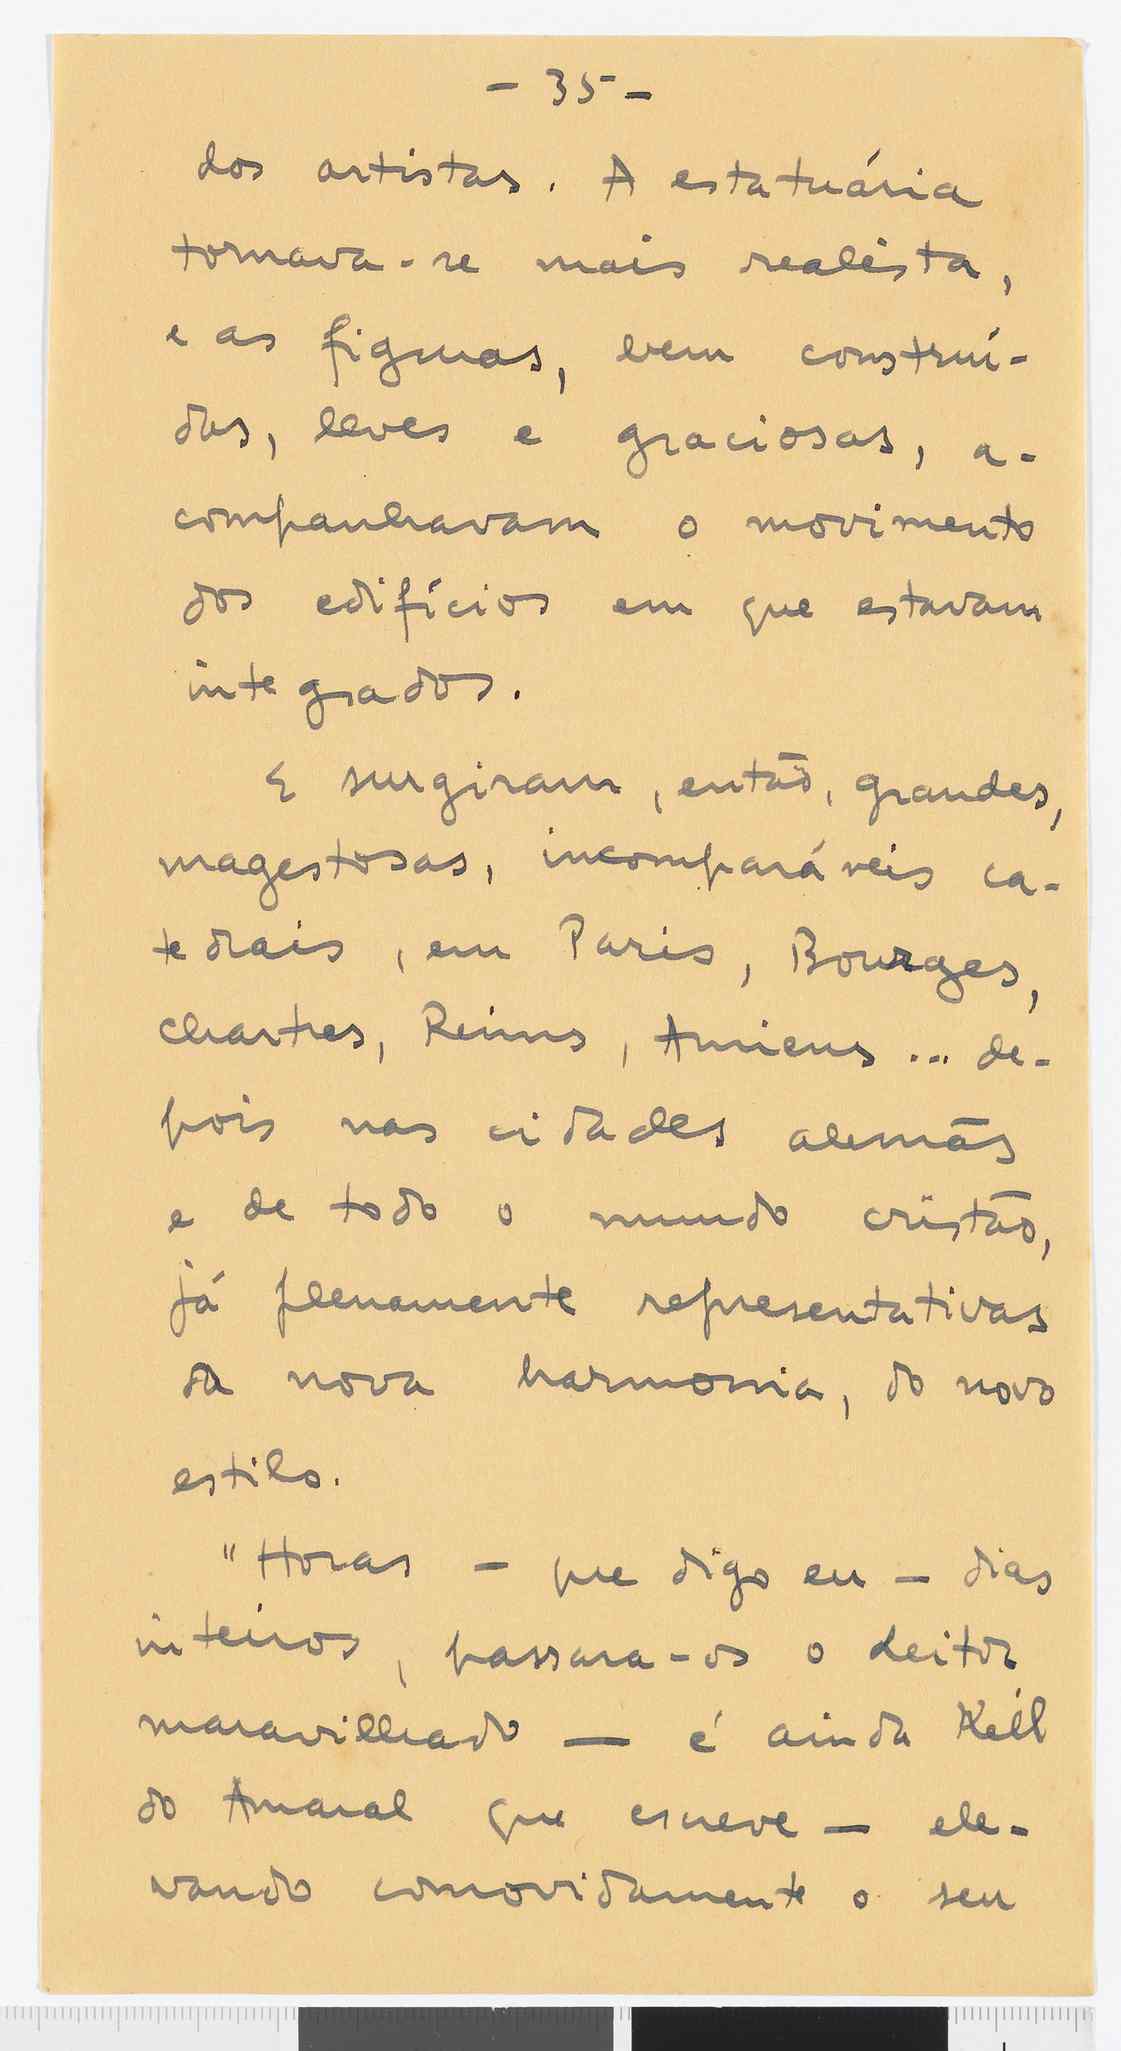 - 35 -
dos artistas. A estatuária
tornava-se mais realista,
e as figuras, bem construí-
das, leves e graciosas, a-
companhavam o movimento
dos edifícios em que estavam
integrados.
E surgiram, então, grandes,
magestosas, incomparáveis ca-
tedrais, em Paris, Bourges,
Chartres, Reims, Amiens ... de-
pois nas cidades alemãs
e de todo o mundo cristão,
já plenamente representativas
da nova harmonia, do novo
estilo.
"Horas - que digo eu - dias
inteiros, passara-os o leitor
maravilhado — é ainda Keil
do Amaral que escreve — ele-
vando comovidamente o seu